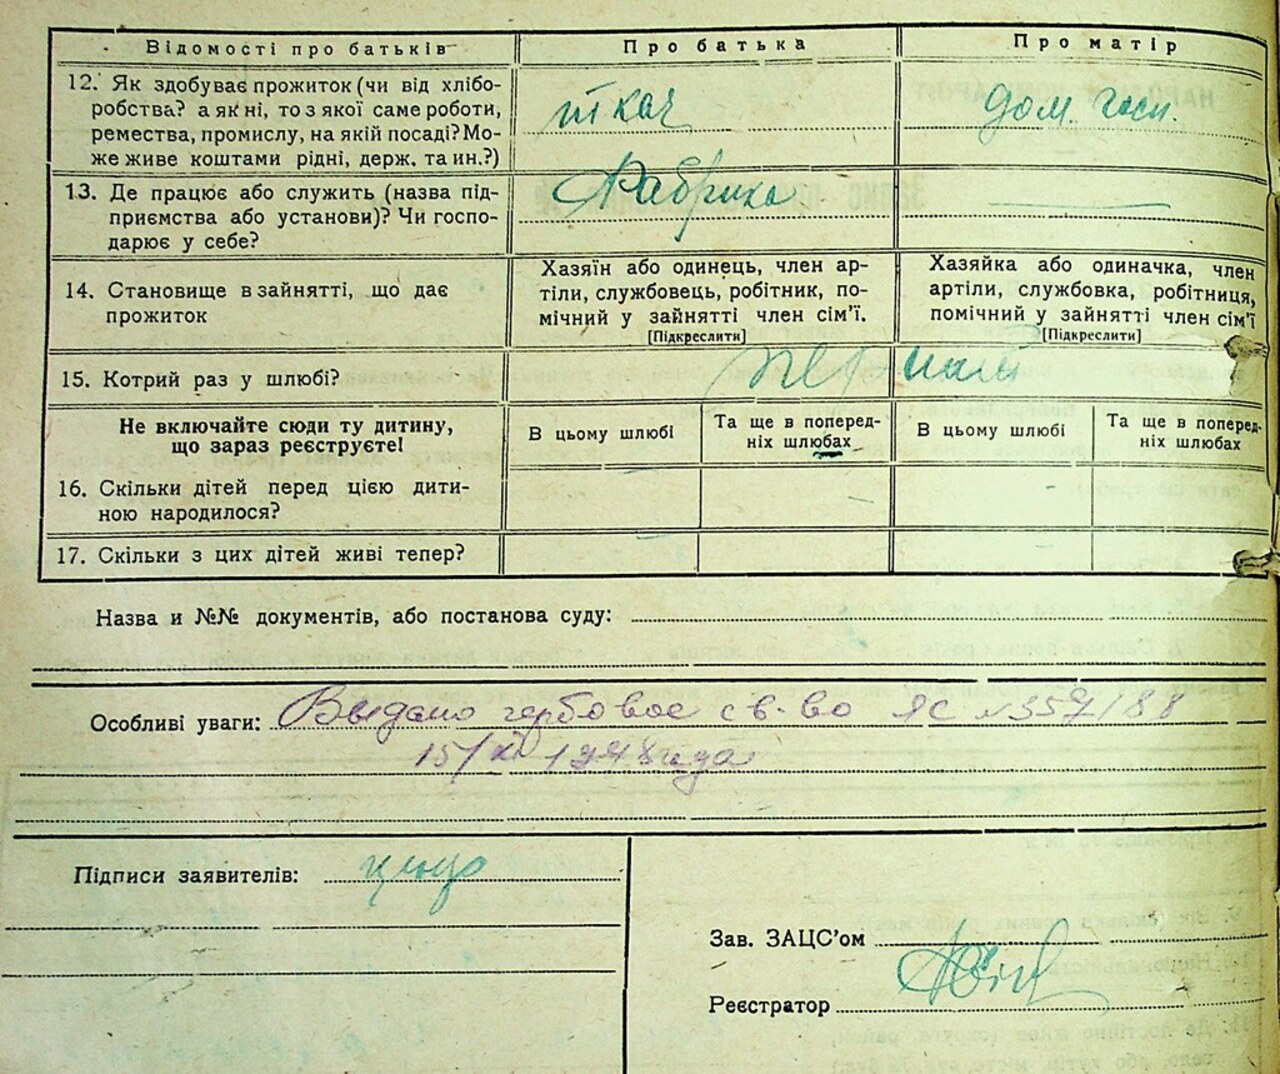 Відомості про батьків Про батька Про матір
12. Як здобуває прожиток (чи від хлібо-
робства? а як ні, то з якої саме роботи,
ремества, промислу, на якій посаді? Мо-
же живе коштами рідні, держ. та ин.?)
ткач
дом. госп.
13. Де працює або служить (назва під-
приємства або установи)? Чи госпо-
дарює у себе?
Фабрика
14. Становище в зайнятті, що дає
прожиток
Хазяїн або одинець, член ар-
тіли, службовець, робітник, по-
мічний у зайнятті член сім'ї.
[Підкреслити]
Хазяйка або одиначка, член
артіли, службовка, робітниця,
помічний у зайнятті член сім'ї
[Підкреслити]
15. Котрий раз у шлюбі?
Не включайте сюди ту дитину,
що зараз реєструєте!
В цьому шлюбі
Та ще в поперед-
ніх шлюбах
В цьому шлюбі
Та ще в поперед-
ніх шлюбах
16. Скільки дітей перед цією дити-
ною народилося?
17. Скільки з цих дітей живі тепер?
Назва и №№ документів, або постанова суду:
Особливі уваги: Выдано гербовое св-во ЯС № 357188
15/XI 1948 года
Підписи заявителів:
Зав. ЗАЦС'ом
Реєстратор